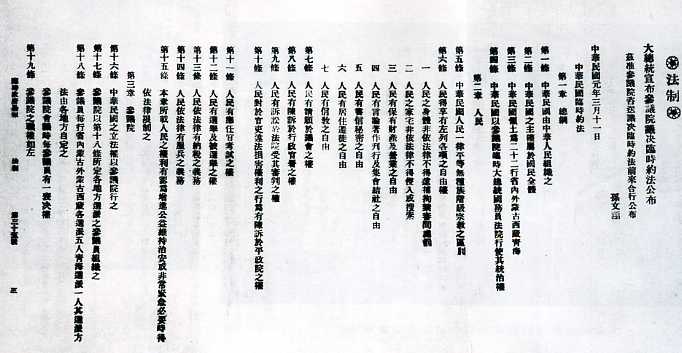 法制
大總統宣布參議院議决臨時約法公布
茲准參議院咨送議决臨時約法前來合行公布
孫文
中華民國元年三月十一日
中華民國臨時約法
第一章　總綱
第一條　中華民國由中華人民組織之
第二條　中華民國之主權屬於國民全體
第三條　中華民國領土爲二十二行省內外蒙古西藏青海
第四條　中華民國以參議院臨時大總統國務員法院行使其統治權
第二章　人民
第五條　中華民國人民一律平等無種族階級宗教之區別
第六條　人民得享有左列各項之自由權
一　人民之身體非依法律不得逮捕拘禁審問處罰
二　人民之家宅非依法律不得侵入或搜索
三　人民有保有財產及營業之自由
四　人民有言論著作刊行及集會結社之自由
五　人民有書信秘密之自由
六　人民有居住遷徙之自由
七　人民有信教之自由
第七條　人民有請願於議會之權
第八條　人民有陳訴於行政官署之權
第九條　人民有訴訟於法院受其審判之權
第十條　人民對於官吏違法損害權利之行爲有陳訴於平政院之權
第十一條　人民有應任官考試之權
第十二條　人民有選舉及被選舉之權
第十三條　人民依法律有納稅之義務
第十四條　人民依法律有服兵之義務
第十五條　本章所載人民之權利有認爲增進公益維持治安或非常緊急必要時得
依法律限制之
第三章　參議院
第十六條　中華民國之立法權以參議院行之
第十七條　參議院以第十八條所定各地方選派之參議員組織之
第十八條　參議員每行省內蒙古外蒙古西藏各選派五人青海選派一人其選派方
法由各地方自定之
參議院會議時每參議員有一表决權
第十九條　參議院之職權如左
臨時政府公報　法制　第三十五號　三